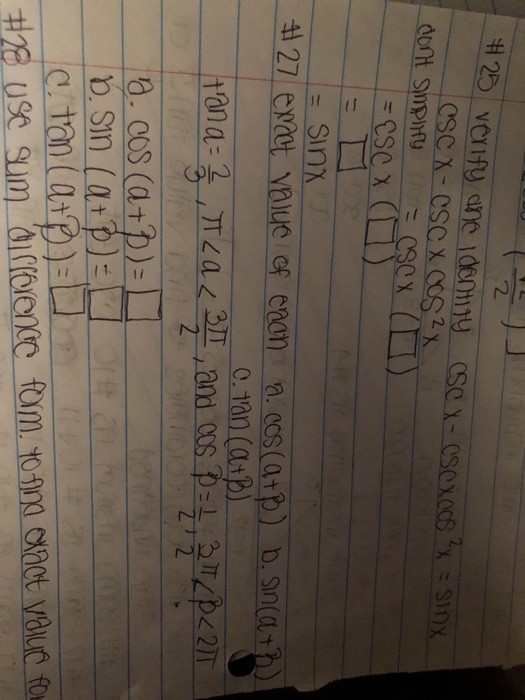 (π/2)]
#25 verify the identity cscx - cscxcos²x = sinx
cscx - cscx cos²x
don't simplify = cscx (□)
= cscx (□)
= □
= sinx
#27 exact value of each a. cos(a+β) b. sin(a+β)
c. tan(a+β)
tan a = 2/3, π<a<3π/2, and cos β = 1/2, 3π/2<β<2π.
a. cos(a+β)=□
b. sin (a+β)=□
c. tan(a+β)=□
#28 use sum difference form. to find exact value for